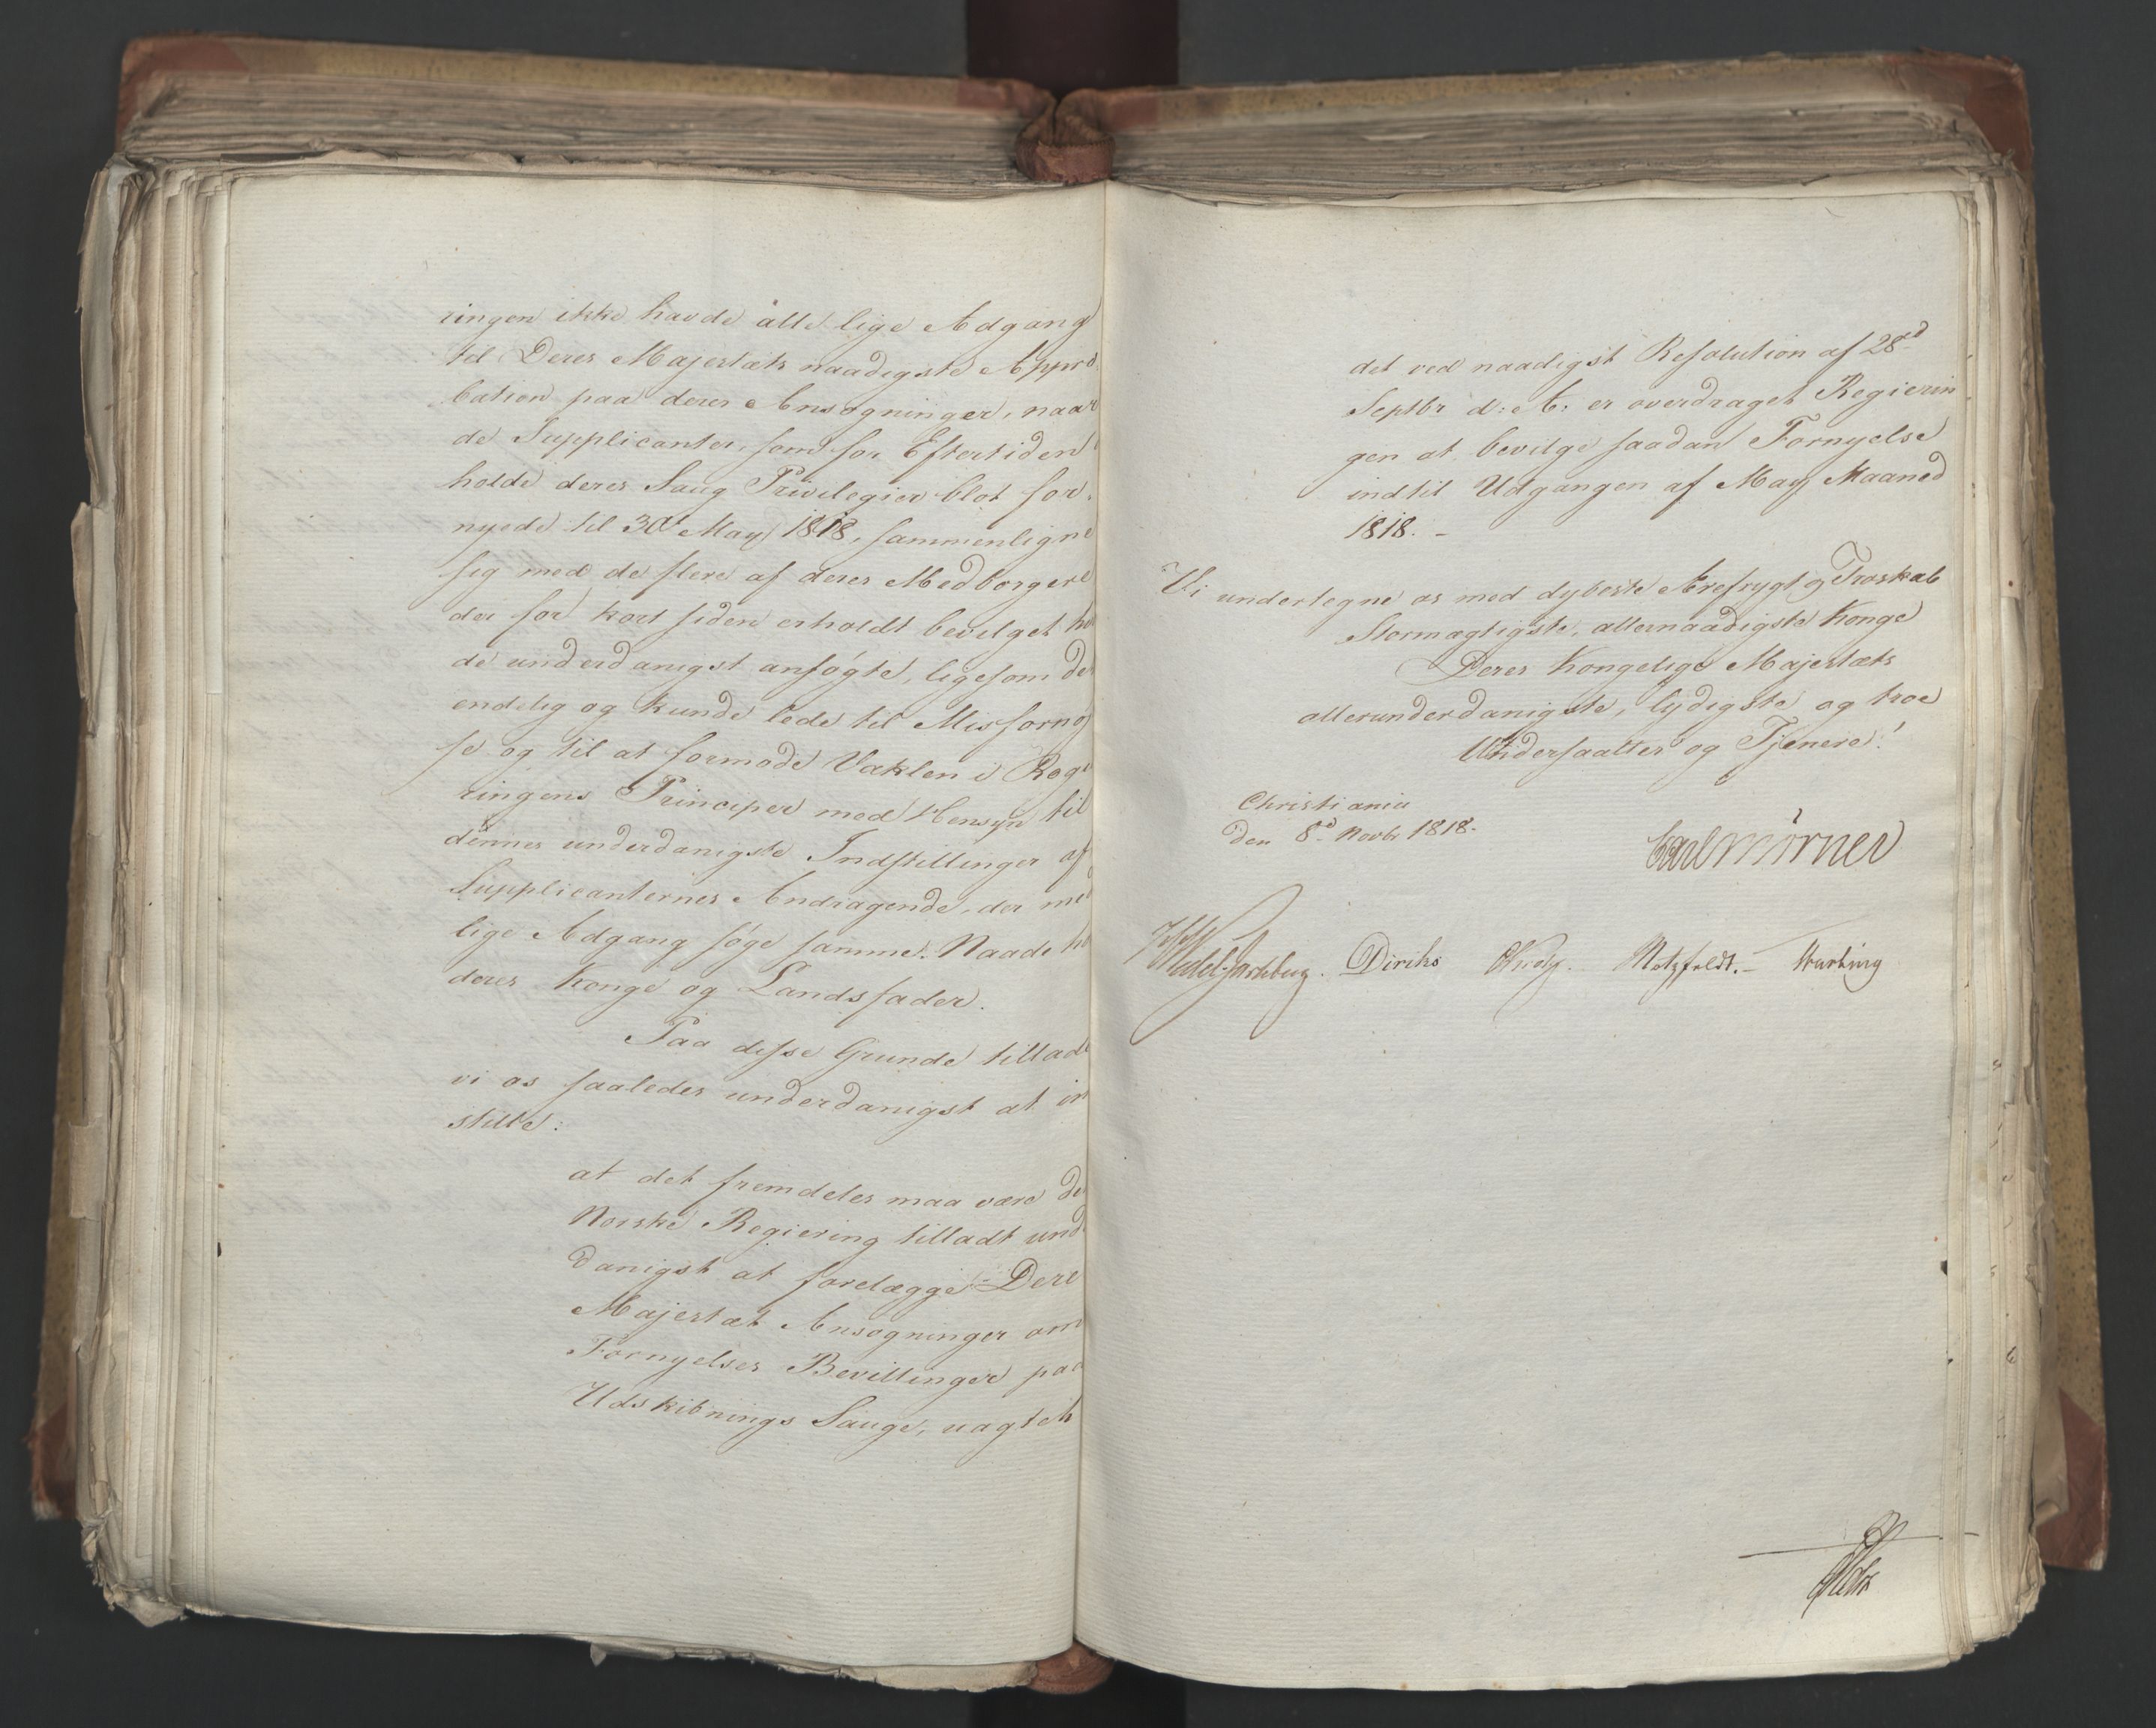 ringen ikke havde alle lige Adgang
til Deres Majestæts naadigste Appro-
bation paa deres Ansøgninger, naar
de Supplicanter, som for Eftertiden
holde deres Saug Privilegier blot for-
nyede til 30d May 1818, sammenligne
sig med de flere af deres Medborgere
der for kort siden erholdt bevilget hva
de underdanigst ansøgte, ligesom det
endelig og kunde lede til Misfornøj
se og til at formode Vaklen i Regi
ringens Principer med Hensyn til
dennes underdanigste Indstillinger af
Supplicanternes Andragende, der med
lige Adgang søge samme Naade ho
deres Konge og Landsfader.
Paa disse Grunde tillade
vi os saaledes underdanigst at in
stille:
at det fremdeles maa være de
Norske Regiering tilladt und
danigst at forelægge Dere
Majestæt Ansøgninger om
Fornyelses Bevillinger paa
Udskibnings Sauge, uagtet
det ved naadigst Resolution af 28d
Septbr d: A: er overdraget Regierin
gen at bevilge saadan Fornyelse
indtil Udgangen af May Maaned
1818. -
Vi undertegne os med dybeste Ærefrygt og Troskab
Stormægtigste, allernaadigste Konge
Deres Kongelige Majestæts
allerunderdanigste, lydigste og troe
Undersaatter og Tjenere!
Christiania
den 8d Novbr 1818.
Carl Mörner
Wedel-Jarlsberg. Diriks Krog. Motzfeldt. - Hurting